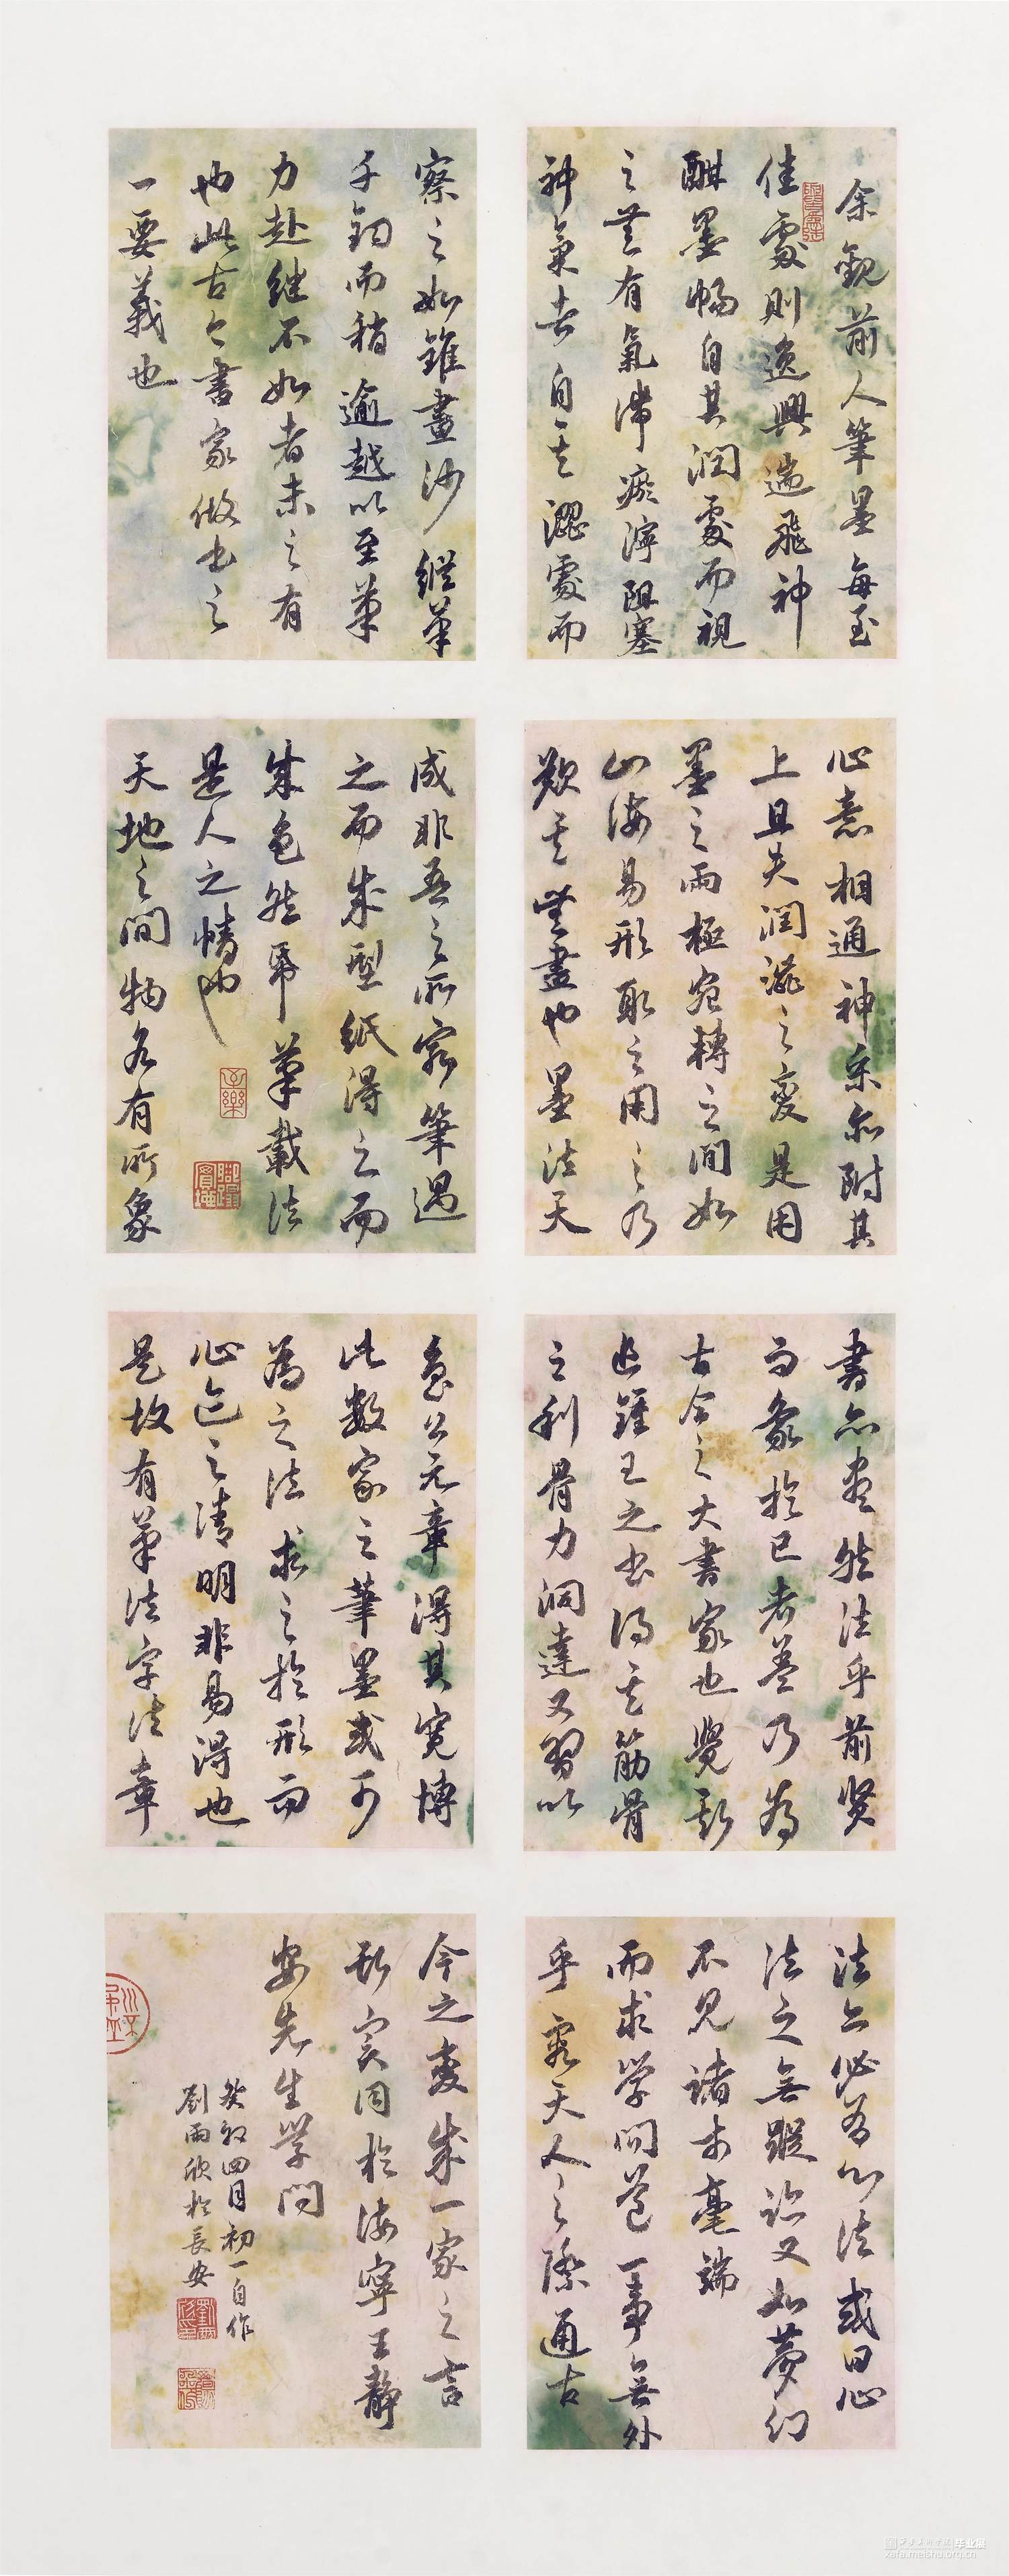 余觀前人筆墨每至
佳處則逸興遄飛神
酣墨暢自其潤處而視
之莫有氣滯瘀濘阻塞
神氣者自其澀處而
察之如錐畫沙縱筆
千鈞而稍逾越以至筆
力赴繼不如者未之有
也此古之書家做書之
一要義也
心意相通神采亦附其
上且夫潤澀之變是用
墨之兩極宛轉之間如
山海易形取之用之乃
歎其無盡也墨法天
成非吾之所窮筆過
之而成型紙得之而
成色然帋筆載法
是人之情也
天地之間物各有所象
書亦盡然法乎前賢
而象於己者蓋乃為
古今之大書家也覺斯
追鍾王之書得其筋骨
之利骨力洞達又習以
魯公元章得其寬博
此數家之筆墨或可
為之法求之於形而
心亡之清明非易得也
是故有筆法字法章
法亦必為心法或曰心
法之無蹤跡又如夢幻
不見諸於毫端
而求學問蓋一事無外
乎究天人之際通古
今之變成一家之言
斯實同於海寧王靜
安先生學問
癸卯四月初一自作
劉雨欣於長安
西安美術學院畢業展
xafa.meishu.org.cn